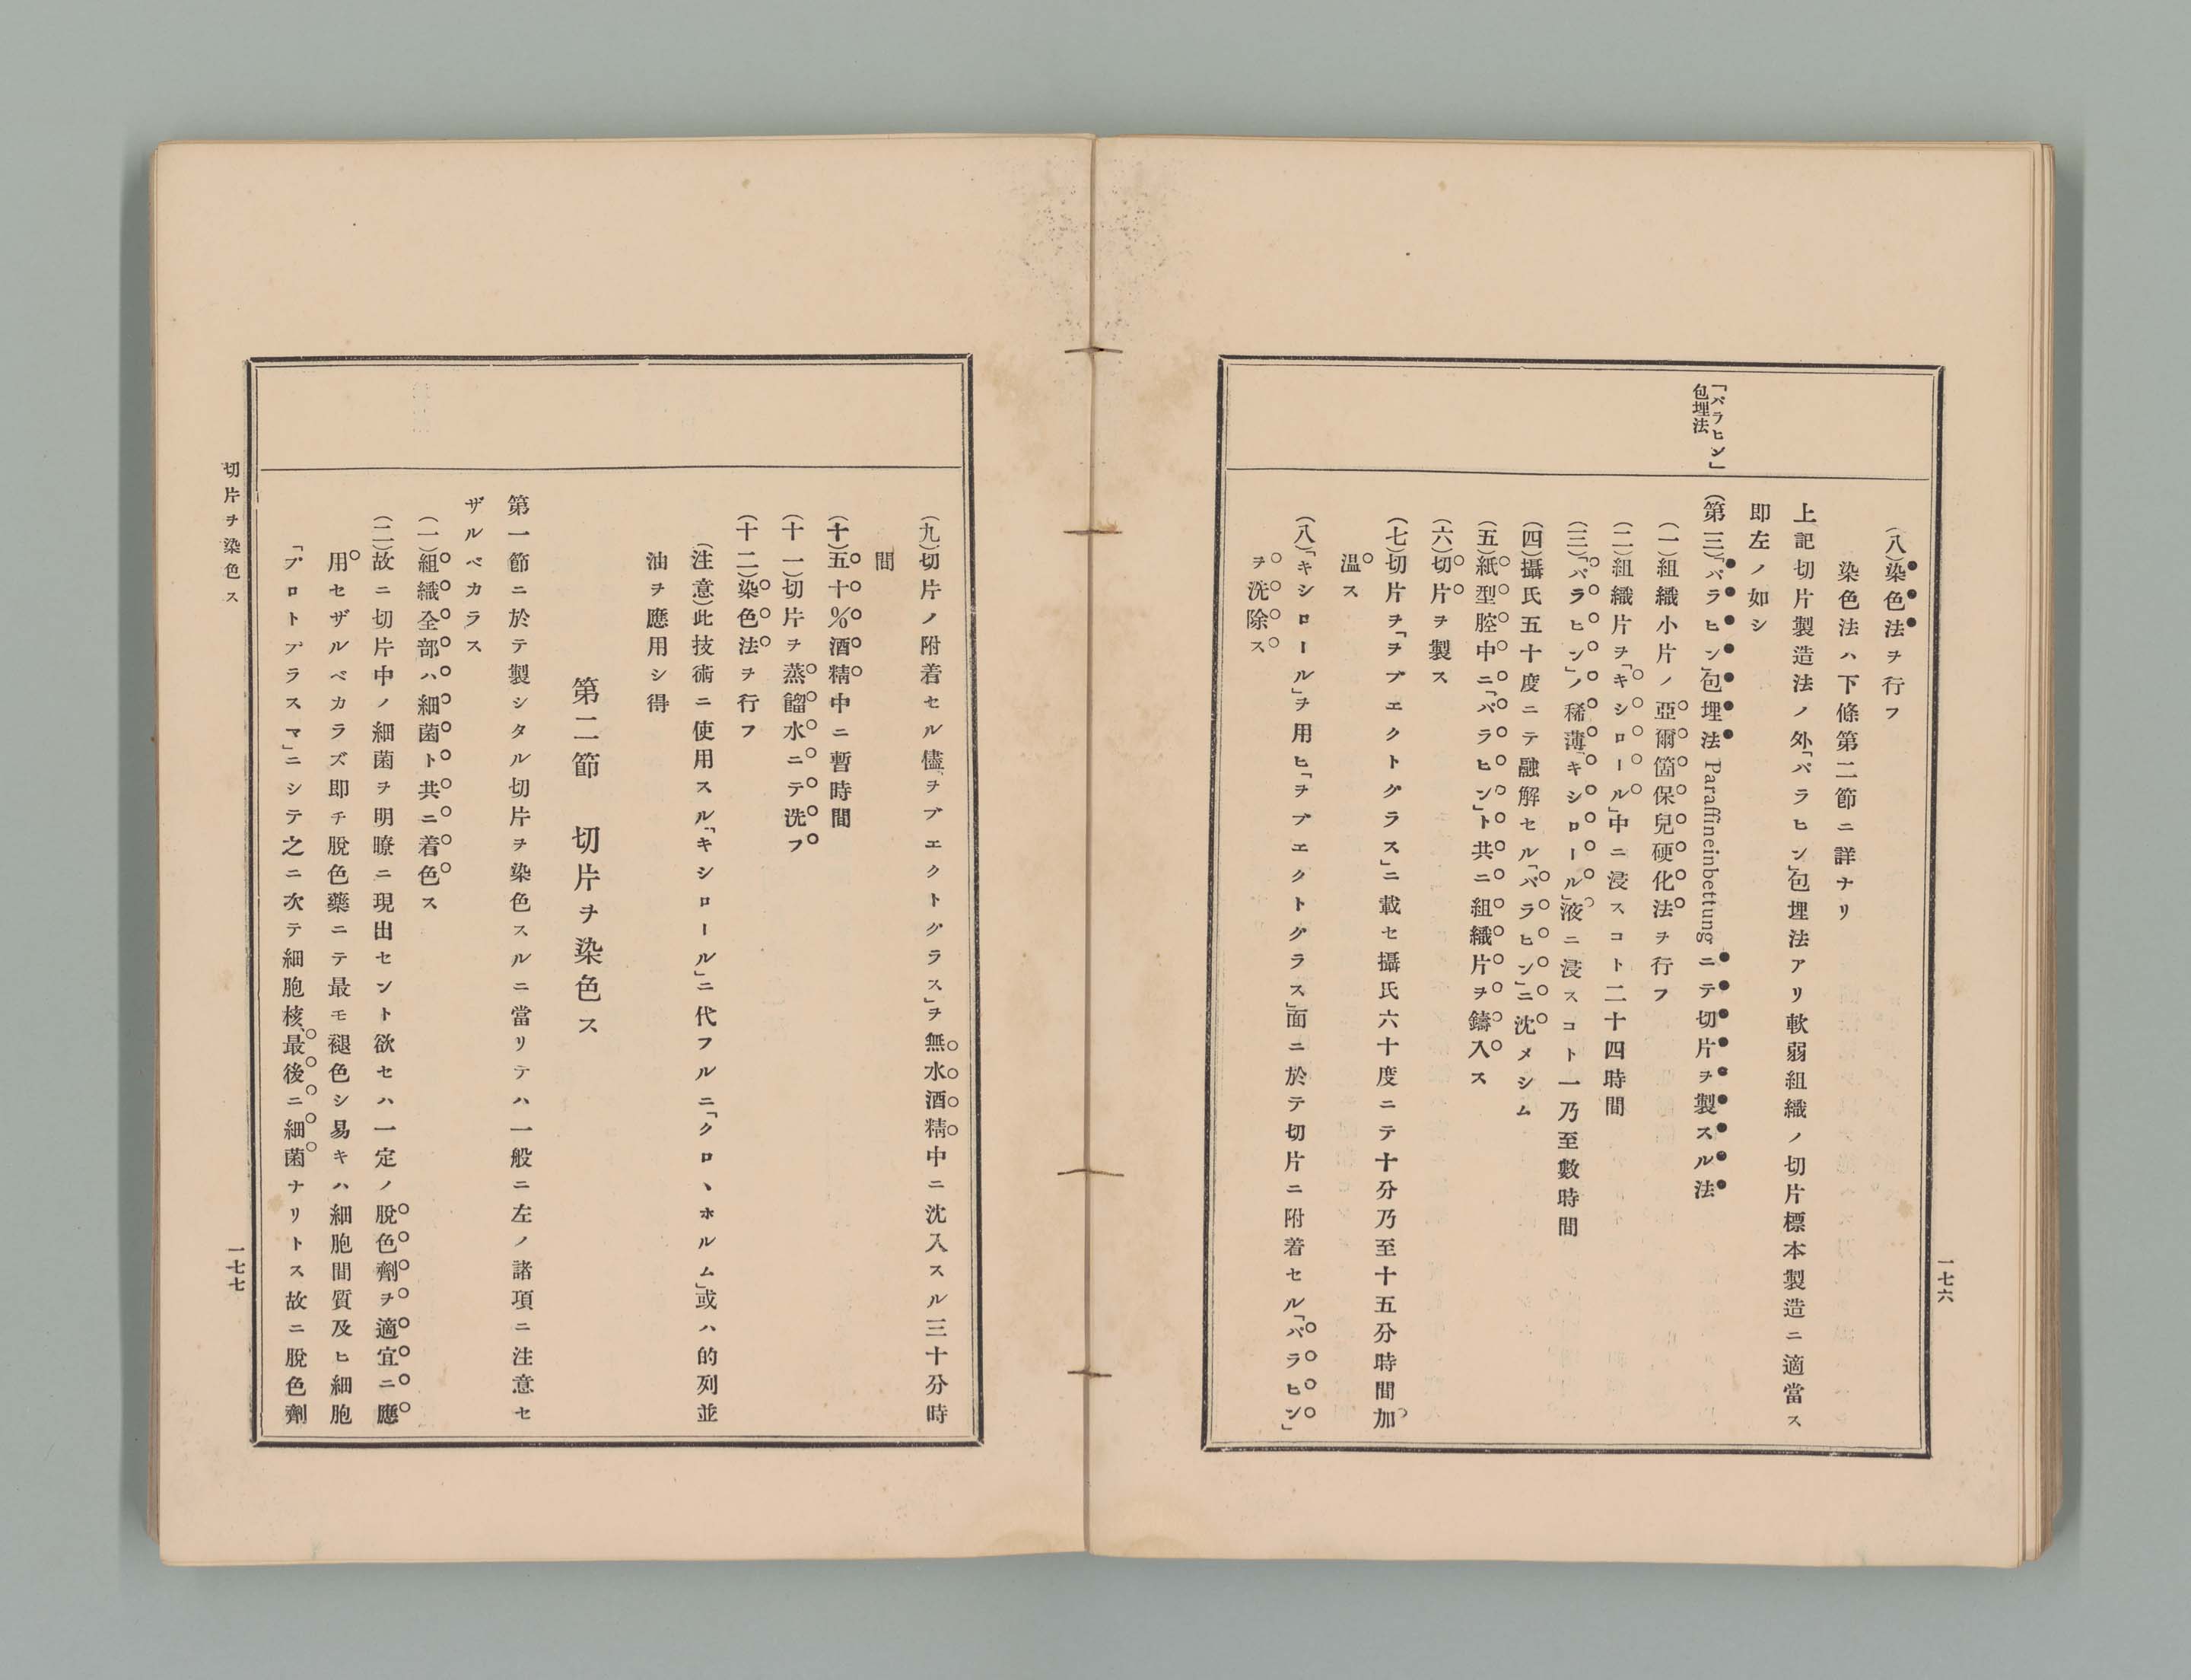 一七六
「パラヒン」
包埋法
(八)染色法ヲ行フ
染色法ハ下條第二節ニ詳ナリ
上記切片製造法ノ外「パラヒン」包埋法アリ軟弱組織ノ切片標本製造ニ適當ス
即左ノ如シ
(第三)「パラヒン」包埋法 Paraffineinbettung ニテ切片ヲ製スル法
(一)組織小片ノ亞爾箇保兒硬化法ヲ行フ
(二)組織片ヲ「キシロール」中ニ浸スコト二十四時間
(三)「パラヒン」ノ稀薄「キシロール」液ニ浸スコト一乃至數時間
(四)攝氏五十度ニテ融解セル「パラヒン」ニ沈メシム
(五)紙型腔中ニ「パラヒン」ト共ニ組織片ヲ鑄入ス
(六)切片ヲ製ス
(七)切片ヲ「ヲブエクトグラス」ニ載セ攝氏六十度ニテ十分乃至十五分時間加
温ス
(八)「キシロール」ヲ用ヒ「ヲブエクトグラス」面ニ於テ切片ニ附着セル「パラヒン」
ヲ洗除ス
(九)切片ノ附着セル儘「ヲブエクトグラス」ヲ無水酒精中ニ沈入スル三十分時
間
(十)五十%酒精中ニ暫時間
(十一)切片ヲ蒸餾水ニテ洗フ
(十二)染色法ヲ行フ
(注意)此技術ニ使用スル「キシロール」ニ代フルニ「クロヽホルム」或ハ的列並
油ヲ應用シ得
第二節　切片ヲ染色ス
第一節ニ於テ製シタル切片ヲ染色スルニ當リテハ一般ニ左ノ諸項ニ注意セ
ザルベカラス
(一)組織全部ハ細菌ト共ニ着色ス
(二)故ニ切片中ノ細菌ヲ明瞭ニ現出セント欲セハ一定ノ脱色劑ヲ適宜ニ應
用セザルベカラズ即チ脱色藥ニテ最モ褪色シ易キハ細胞間質及ヒ細胞
「プロトプラスマ」ニシテ之ニ次テ細胞核、最後ニ細菌ナリトス故ニ脱色劑
切片ヲ染色ス
一七七